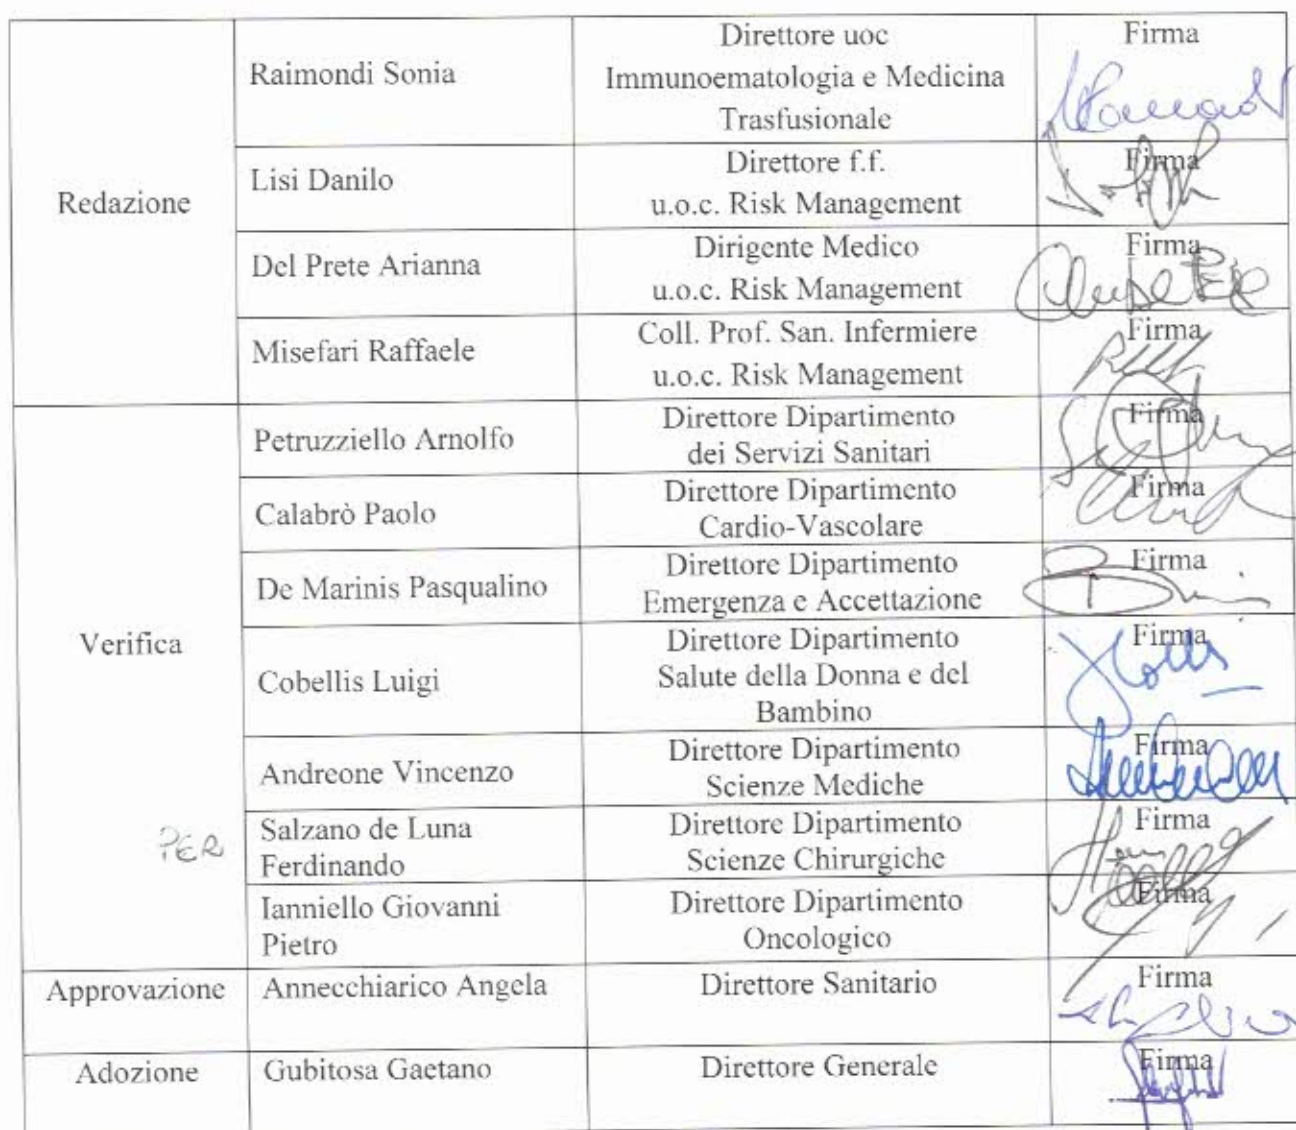 Redazione
Raimondi Sonia
Direttore uoc
Immunoematologia e Medicina
Trasfusionale
Firma
Lisi Danilo
Direttore f.f.
u.o.c. Risk Management
Firma
Del Prete Arianna
Dirigente Medico
u.o.c. Risk Management
Firma
Misefari Raffaele
Coll. Prof. San. Infermiere
u.o.c. Risk Management
Firma
Verifica
Petruzziello Arnolfo
Direttore Dipartimento
dei Servizi Sanitari
Firma
Calabrò Paolo
Direttore Dipartimento
Cardio-Vascolare
Firma
De Marinis Pasqualino
Direttore Dipartimento
Emergenza e Accettazione
Firma
Cobellis Luigi
Direttore Dipartimento
Salute della Donna e del
Bambino
Firma
Andreone Vincenzo
Direttore Dipartimento
Scienze Mediche
Firma
PER
Salzano de Luna
Ferdinando
Direttore Dipartimento
Scienze Chirurgiche
Firma
Ianniello Giovanni
Pietro
Direttore Dipartimento
Oncologico
Firma
Approvazione
Annecchiarico Angela
Direttore Sanitario
Firma
Adozione
Gubitosa Gaetano
Direttore Generale
Firma